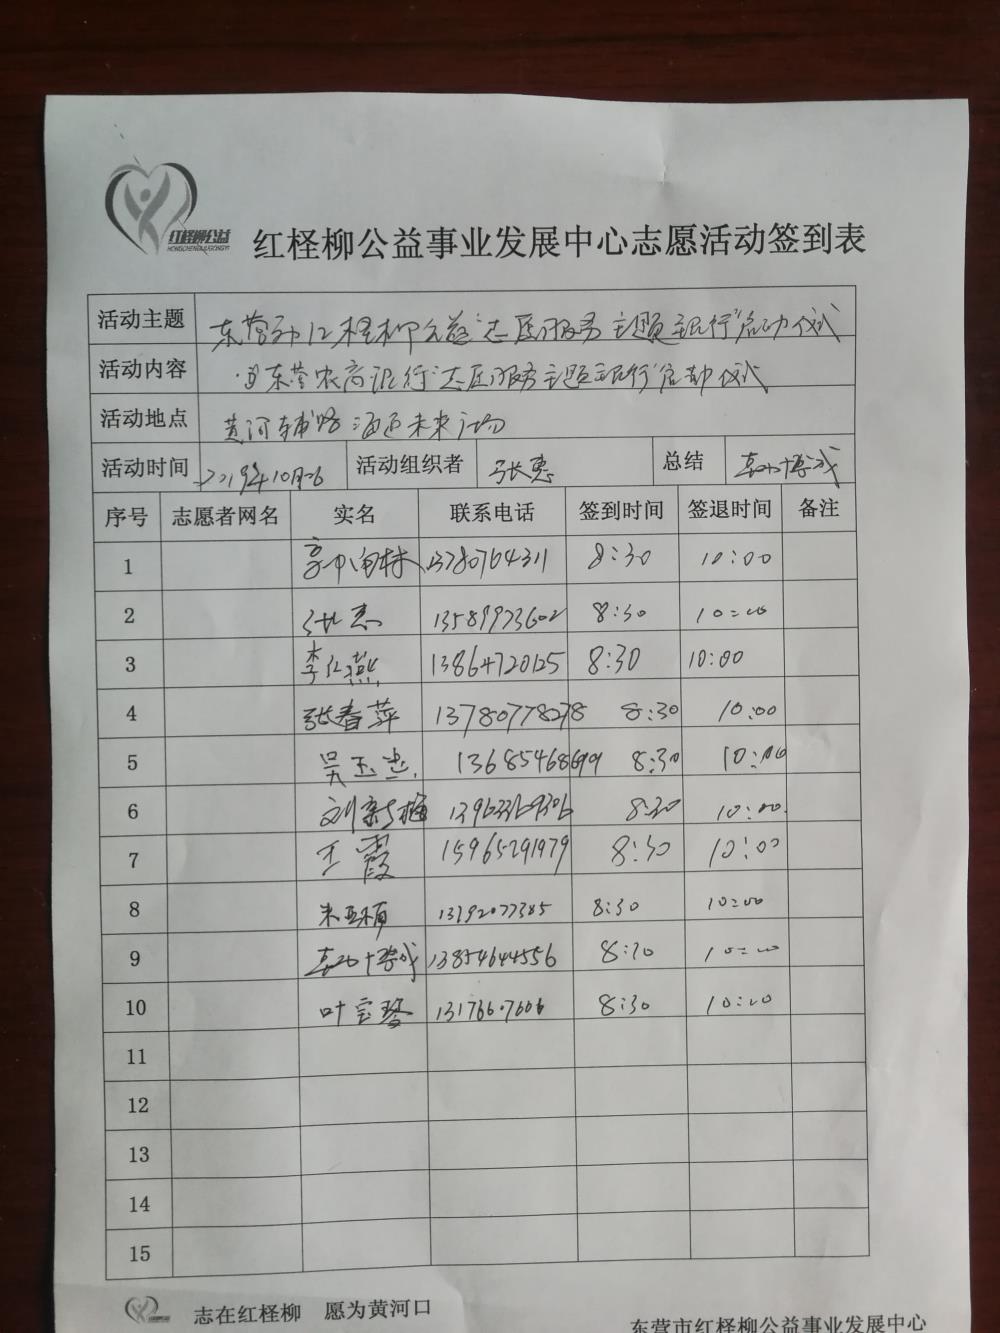 红柽柳公益
HONGCHENGLIUGONGYI
红柽柳公益事业发展中心志愿活动签到表
活动主题 东营市红柽柳公益"志愿服务主题银行"启动仪式
活动内容 东营农商银行"志愿服务主题银行"启动仪式
活动地点 黄河辅路 海通未来广场
活动时间 2019年10月26 活动组织者 张惠 总结
序号 志愿者网名 实名 联系电话 签到时间 签退时间 备注
1 13780764311 8:30 10:00
2 张惠 13589973602 8:30 10:00
3 李红燕 13864720125 8:30 10:00
4 张春萍 13780778278 8:30 10:00
5 吴玉 13685468699 8:30 10:00
6 刘新梅 13963369306 8:30 10:00
7 王霞 15965291979 8:30 10:00
8 13192077385 8:30 10:00
9 13854644556 8:30 10:00
10 叶宝琴 13176607606 8:30 10:00
11
12
13
14
15
志在红柽柳 愿为黄河口
东营市红柽柳公益事业发展中心